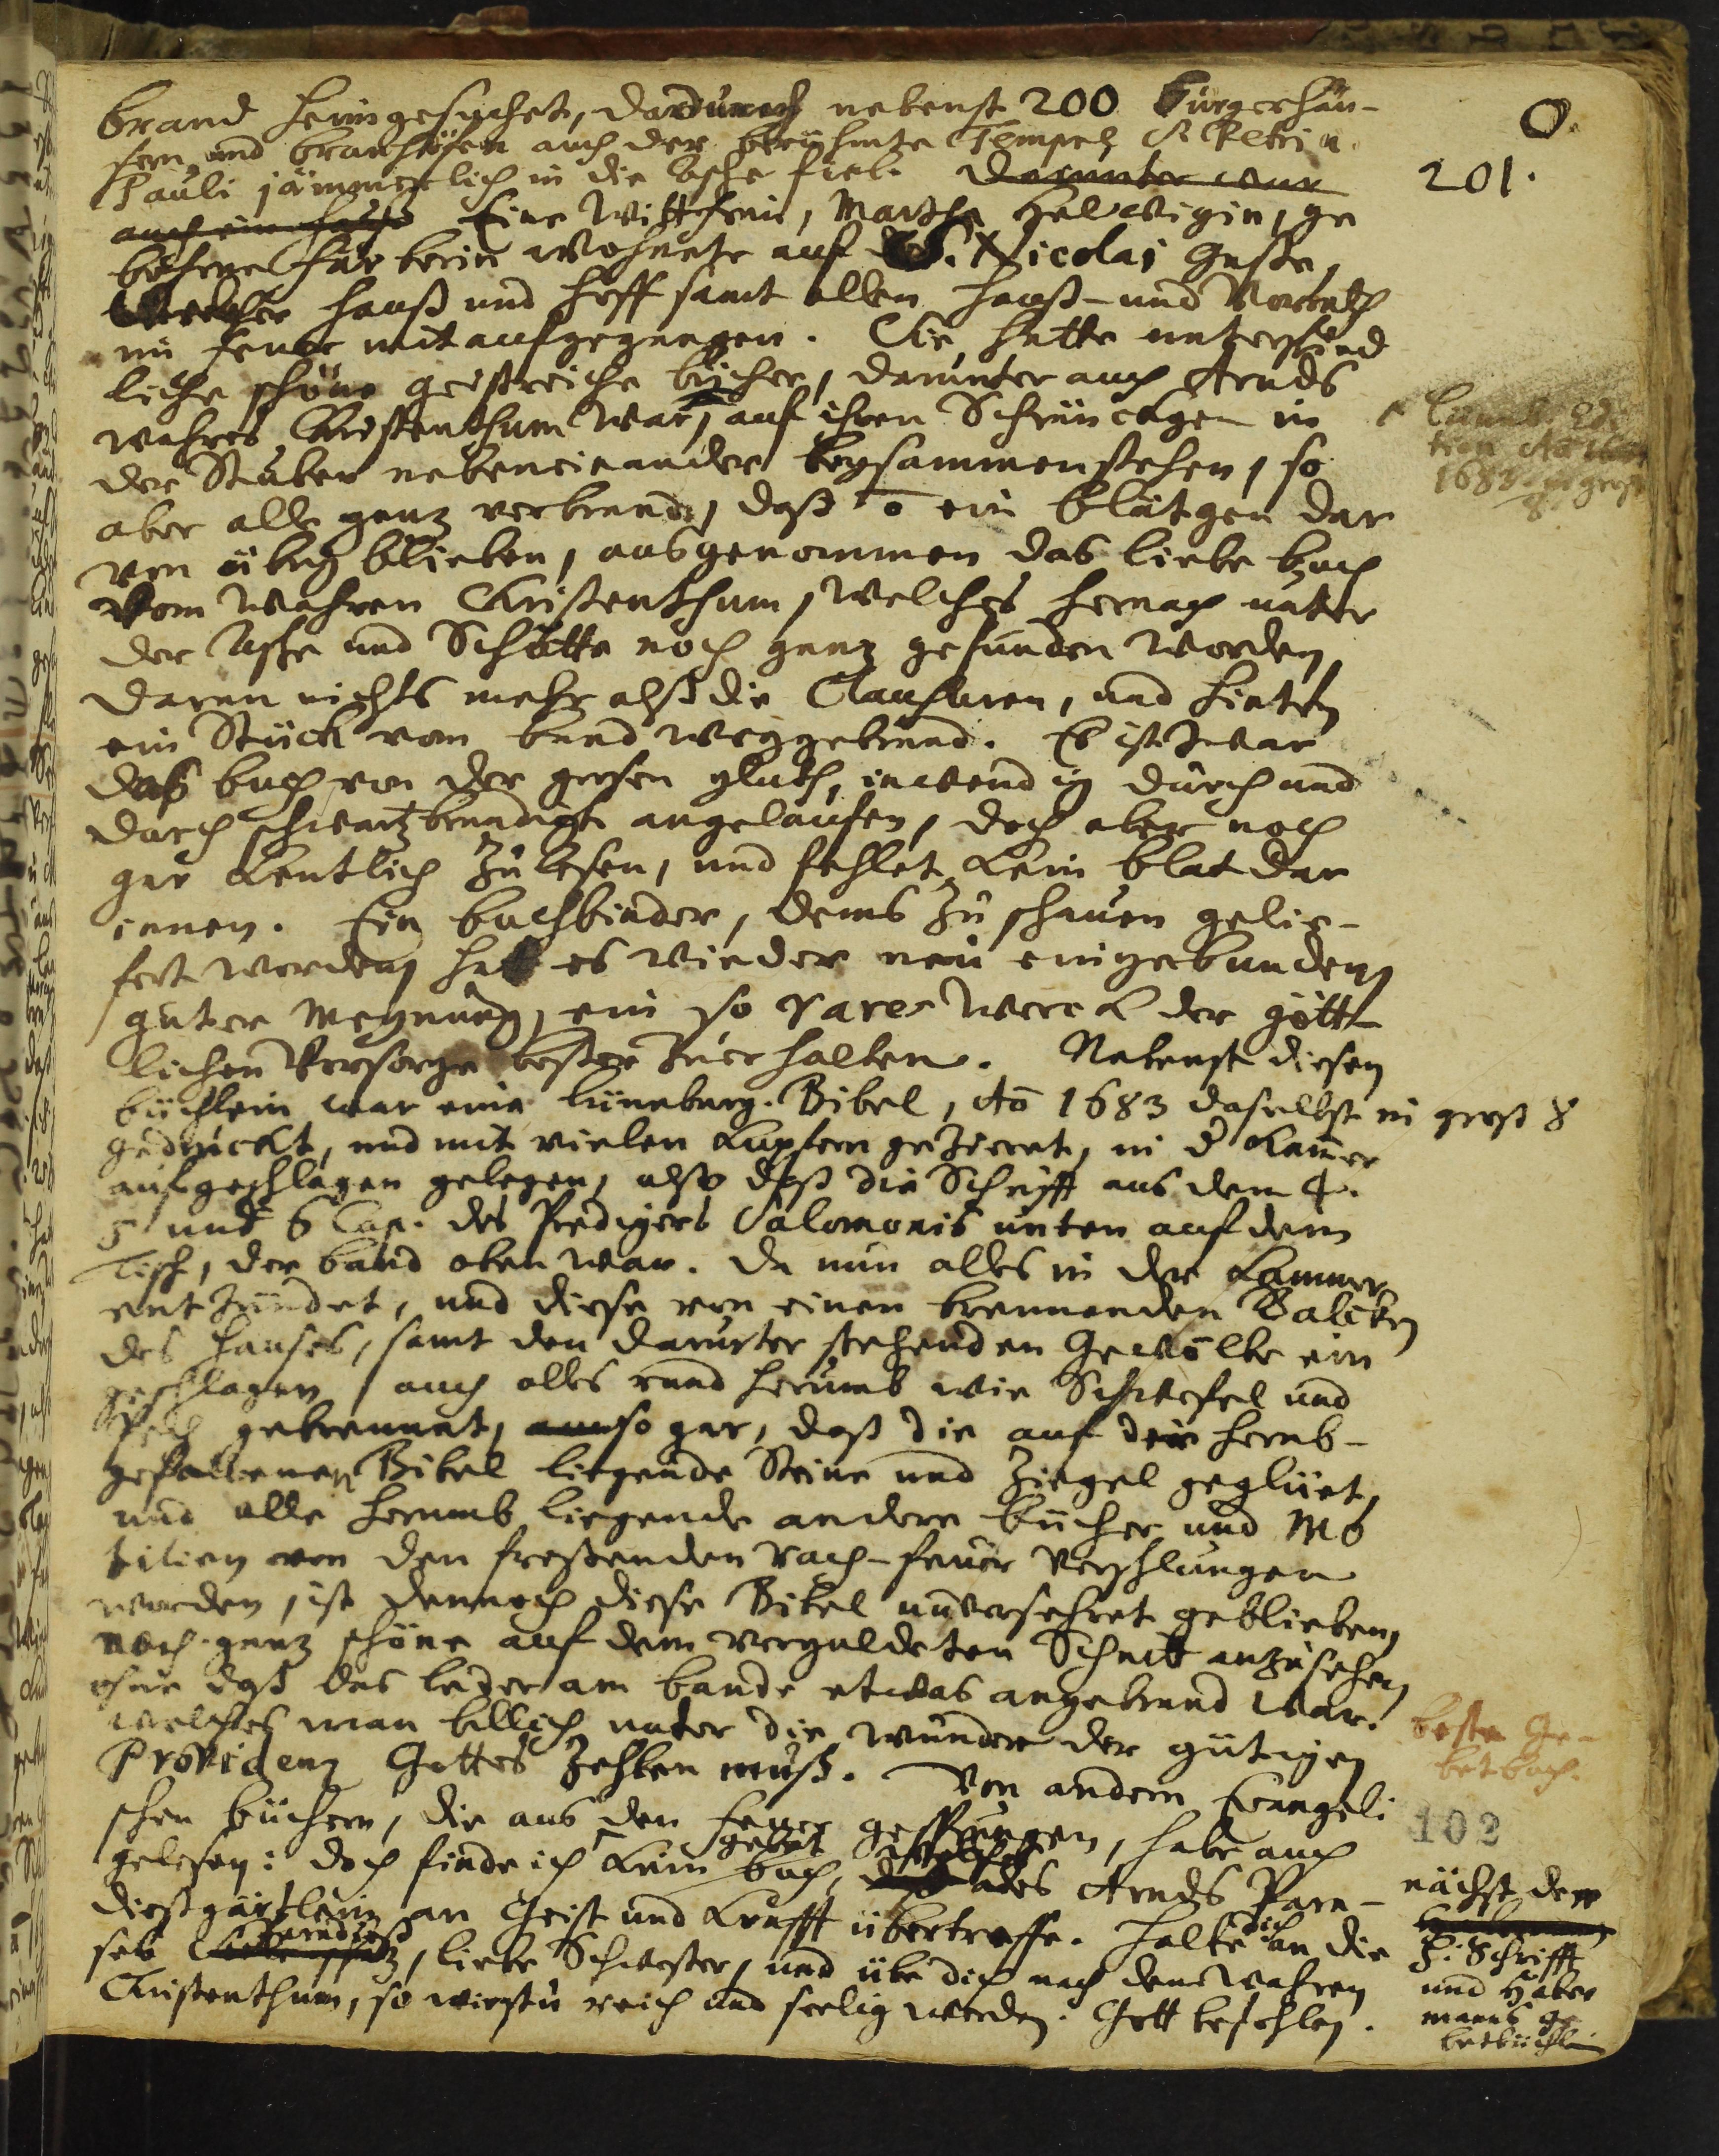 O.
201.
brand heimgesuchet, dardurch nebenst 200 Bürgerhäu-
sern und brauhöfen auch der berühmte Tempel S. Petri u.
Pauli jämmerlich in die Asche fiel. Darunter war
auch ein hauß Eine Wittfrau, Martha Helwigin, ge
bohrne wohnete auf S. Nicolai Gaße,
Welcher hauß und hoff samt allen hauß- und Vorrath
im feuer mit aufgegangen. Sie hatte unterschied
liche schöne geistreiche bücher, darunter auch Arnds
wahres Christenthum war, auf ihren Schränckgen in
der Stuben nebeneinander beysammenstehen, so
aber alle ganz verbrand, daß ō ein blätgen dar
von übrig blieben, ausgenommen das liebe buch
vom wahren Christenthum, welches hernach unter
der Asche und Schutte noch ganz gefunden worden,
daran nichts mehr alß die Clausuren, und hinten
ein Stück vom band weggebrand. Es ist zwar
daß buch von der grosen gluth, inwendig durch und
durch schwartzbrandigt angelaufen, doch aber noch
gar kentlich zu lesen, und fehlet kein blat dar
innen. Ein buchbinder, dems zu schauen gelie-
fert worden, hat es wieder neu eingebunden,
guter Meynung, ein so rares Werck der gött-
lichen Vorsorge beßer zu erhalten. Nebenst diesen
büchlein war eine Lüneburg. Bibel, Aō 1683 daselbst in groß 8
gedruckt, und mit vielen Kupfern gezieret, in d Kam̄er
aufgeschlagen gelegen, also daß die Schrifft aus dem 4.
5 und 6 Cap. des Predigers Salomonis unten auf dem
Tisch, der band oben war. Da nun alles in der Kammer
entzündet, und diese von einen brennenden Balcken
des hauses, samt den darunter stehenden Gewölbe ein
geschlagen, auch alles rund herumb wie Schwefel und
Pech gebrennet, so gar, daß die auf der herab-
gefallenen Bibel liegende Steine und Ziegel geglüet,
und alle herumb liegende andere bücher und Mo
bilien von den freßenden Rach-feuer verschlungen
worden, ist dennoch diese Bibel unversehret geblieben,
noch ganz schöne auf dem verguldeten Schnitt anzusehen,
ohne daß das leder am bande etwas angebrand war.
welches man billich unter die wunder der gütigen
Providenz Gottes zehlen muß. Von andern Evangeli
schen büchern, die aus den feuer gesprungen, habe auch
gelesen: doch finde ich kein gebet buch, welches Arnds Para-
dießgärtlein an Geist und Krafft übertreffe. Halte dich an die
ses Paradieß, liebe Schwester, und übe dich nach dem wahren
Christenthum, so wirstu reich und seelig werden. Gott befohlen.
Lüneb. Edi
tion Aō
1683. in groß
8
beste Ge-
betbuch.
102
nächst der
H. Schrifft
und Haber
manns ge
betbüchlein